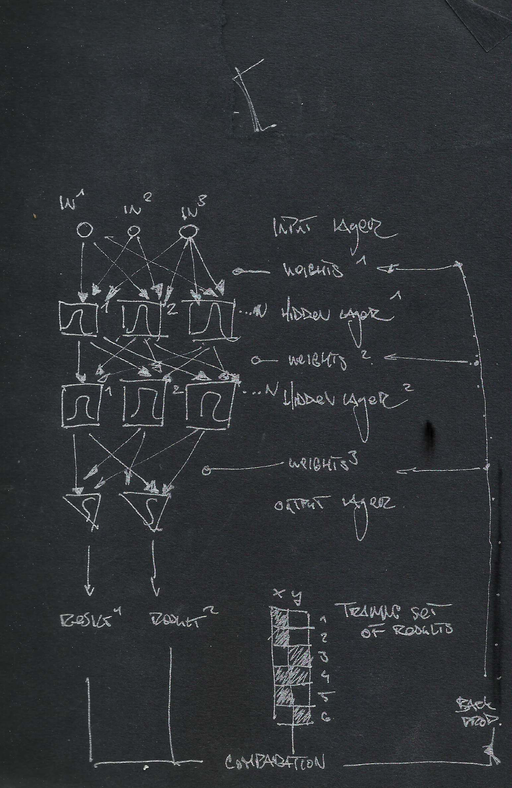 IN¹ IN² IN³
INPUT LAYER
WEIGHTS ¹
1 2 ...N HIDDEN LAYER ¹
WEIGHTS ²
1 2 ...N HIDDEN LAYER ²
WEIGHTS ³
OUTPUT LAYER
RESULT ¹ RESULT ²
X Y
1
2
3
4
5
6
TRAINING SET
OF RESULTS
BACK
PROP.
COMPARATION